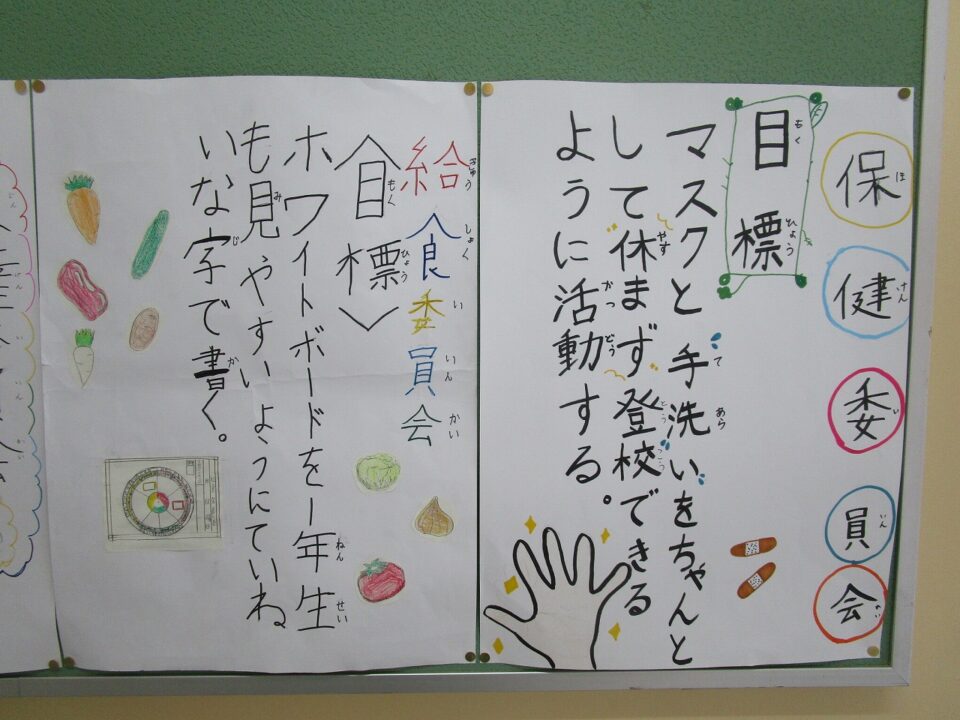 保健委員会
目標
マスクと手洗いをちゃんと
して休まず登校できる
ように活動する。
給食委員会
〈目標〉
ホワイトボードを1年生
も見やすいようにていね
いな字で書く。